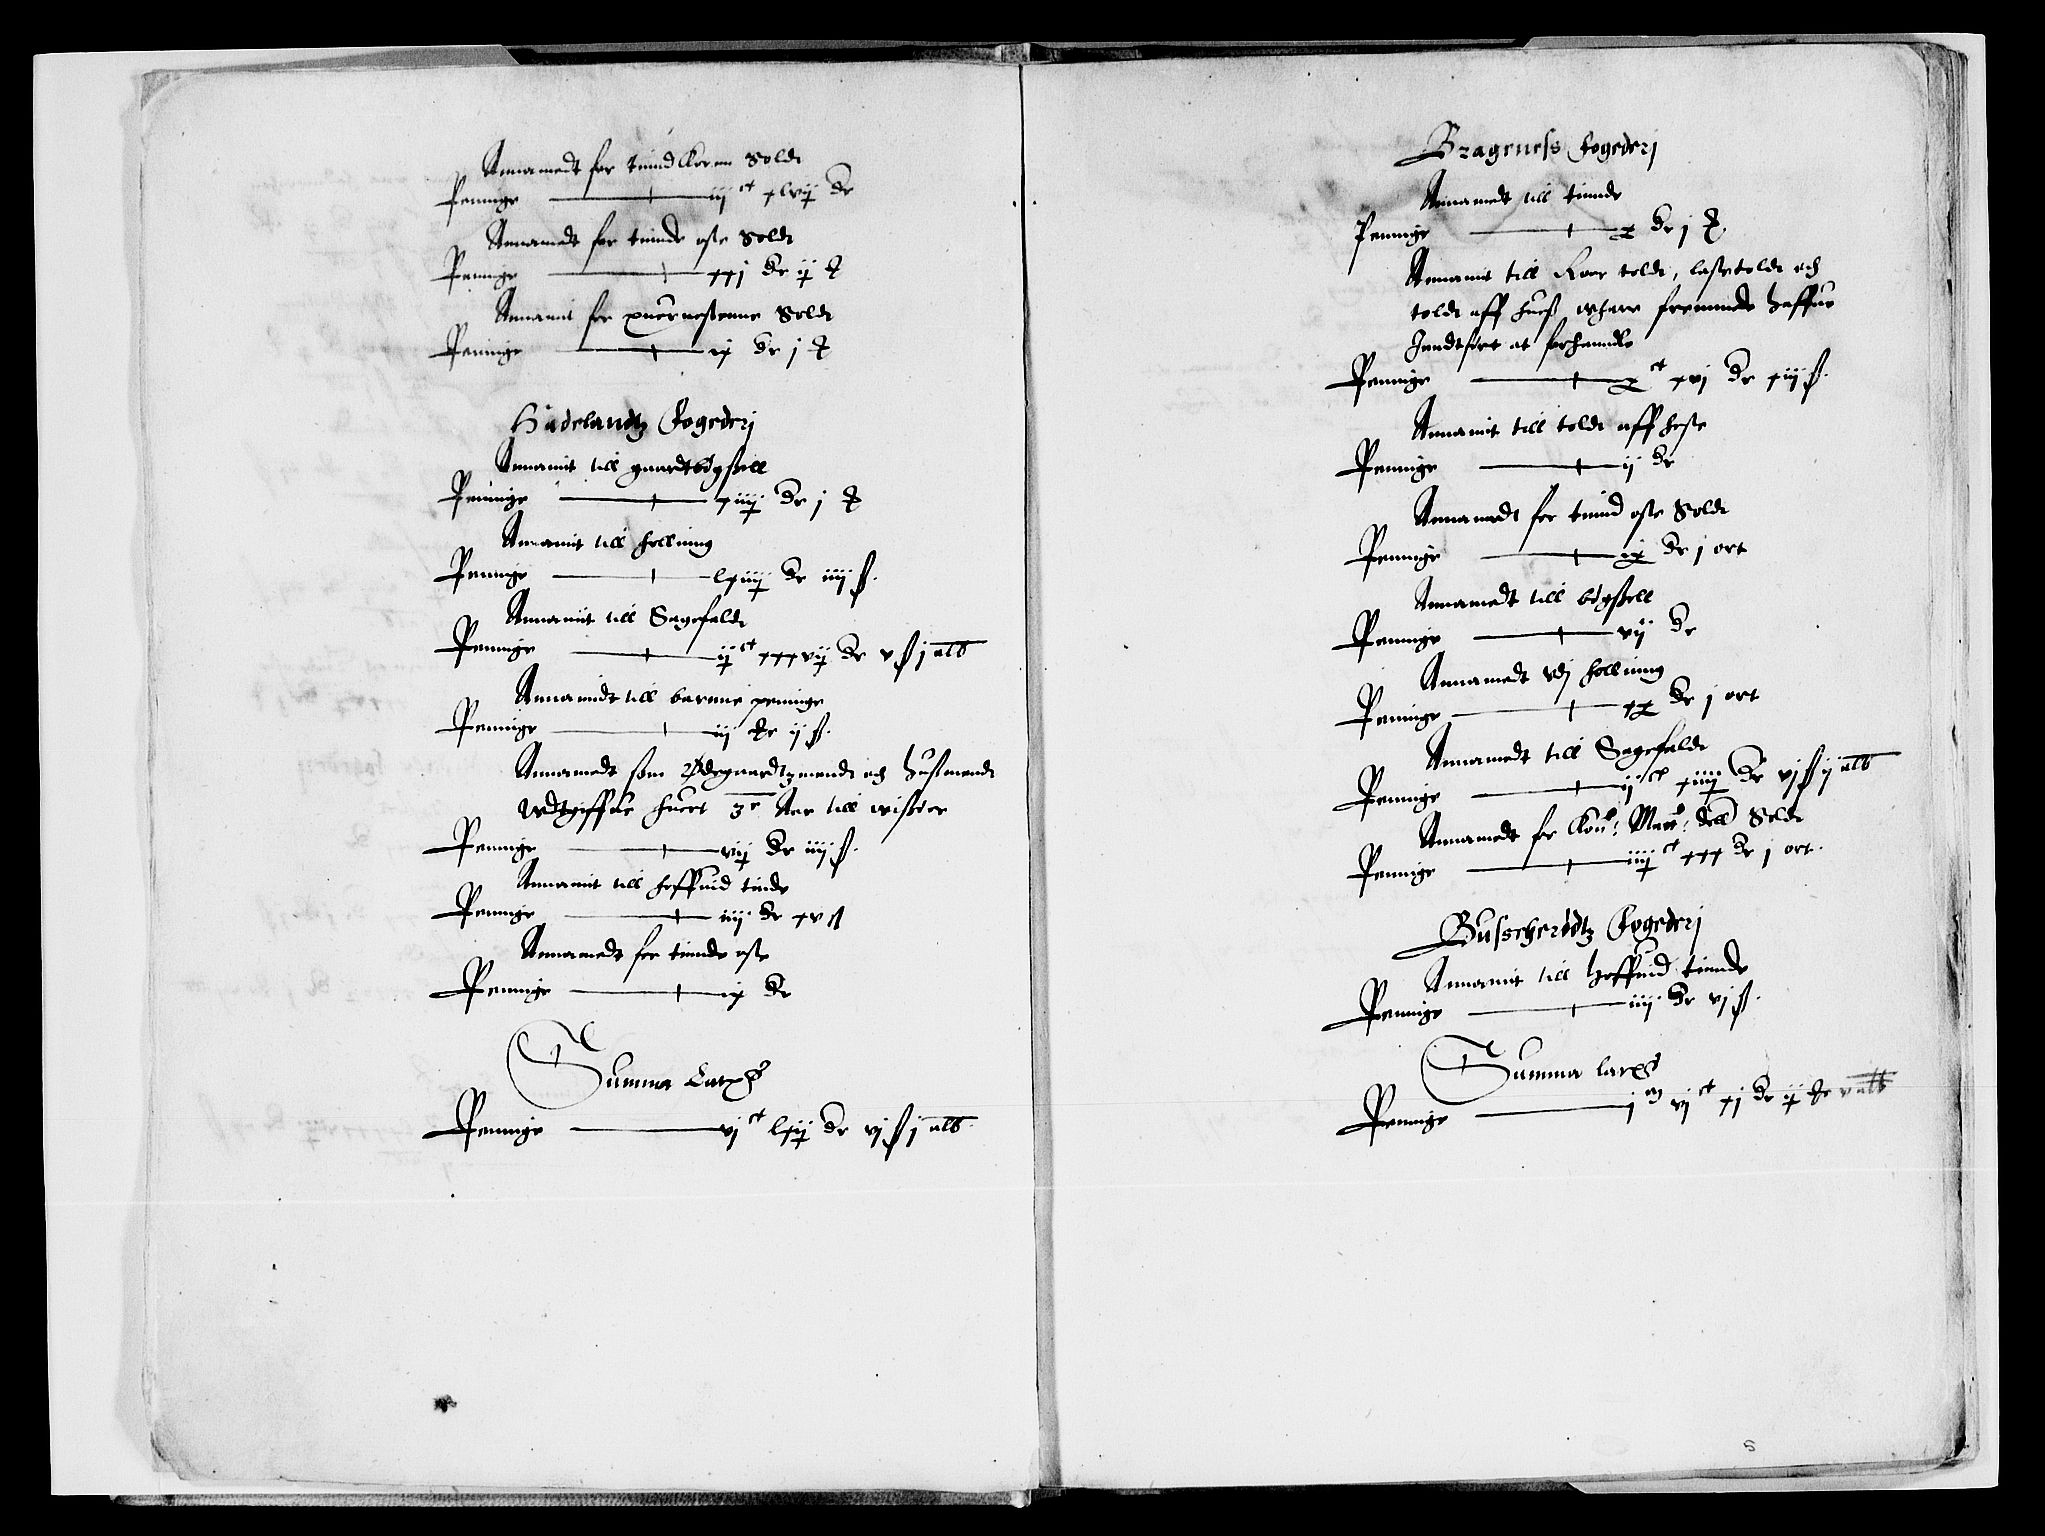 Annamedt for tiindkornn Soldt
Penninge iij ct xlvij dr
Annamedt for tiinde oste Soldt
Penninge xxj dr ij
Annamit for quernestenne Soldt
Penninge ix dr j
Hadelandtz Fogederj
Annamit till gaardtbögszell
Penninge xiiij dr j
Annamit till holluing
Penninge lxiiij dr iiij ß.
Annamit till Sagefaldt
Penninge ij ct xxxvij dr v ß j alb
Annamidt till barnne penninge
Penninge iij dr ij ß.
Annamedt som Ødegaardtzmendt och husmendt
Vdtgiffue huert 3e Aar till
Penninge vij dr iiij ß.
Annamit till hoffuid tinde
Penninge iiij dr xv ß
Annamedt for tiinde oste
Penninge ix dr
Summa
Penninge vj ct lxij dr vj ß j alb
Brageness Fogederj
Annamedt till tiinde
Penninge x dr j
Annamit till Roer toldt, lastetoldt och
toldt aff huess fremmede haffue
Jndtført at forhanndle
Penninge x ct xvj dr xiij ß.
Annamit till toldt aff heste
Penninge ij dr
Annamedt for tiind oste Soldt
Penninge ix dr j ort
Annamedt till bögszell
Penninge vij dr
Annamedt vdj holluing
Penninge xx dr j ort
Annamedt till Sagefaldt
Penninge ij ct xiiij dr vj ß ij alb
Annamedt for Kon: May: dell Soldt
Penninge iiij ct xxx dr j ort.
Busscherödtz Fogederj
Annamit till hoffuid tiinde
Penninge iiij dr vj ß.
Summa
Penninge j m vj ct xj dr ij v alb
5